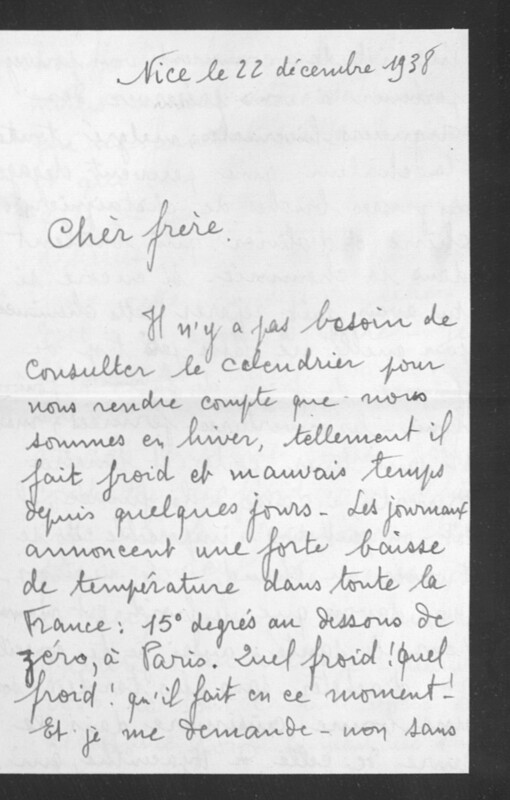 Nice le 22 décembre 1938
Cher frère
Il n'y a pas besoin de
consulter le calendrier pour
nous rendre compte que nous
sommes en hiver, tellement il
fait froid et mauvais temps
depuis quelques jours - Les journaux
annoncent une forte baisse
de température dans toute la
France: 15° degrés au dessous de
zéro, à Paris. Quel froid! Quel
froid qu'il fait en ce moment!
Et je me demande - non sans